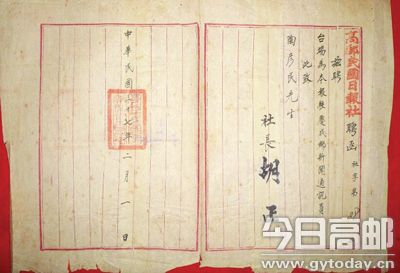 高郵民國日報社聘函 社字第
茲聘
台端為本報駐
新聞通訊員
此致
陶彥民先生
社長 胡正
中華民國 十七年二月一日
今日高邮
www.gytoday.cn